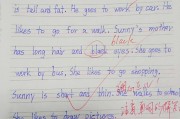 is tall and fat. He goes to work by car. He
likes to go for a walk. Sunny's mother
blank
has long hair and black eyes. She goes to
work by bus. She likes to go shopping.
Sunny is short and thin. She walks to school
She likes to draw pictures.